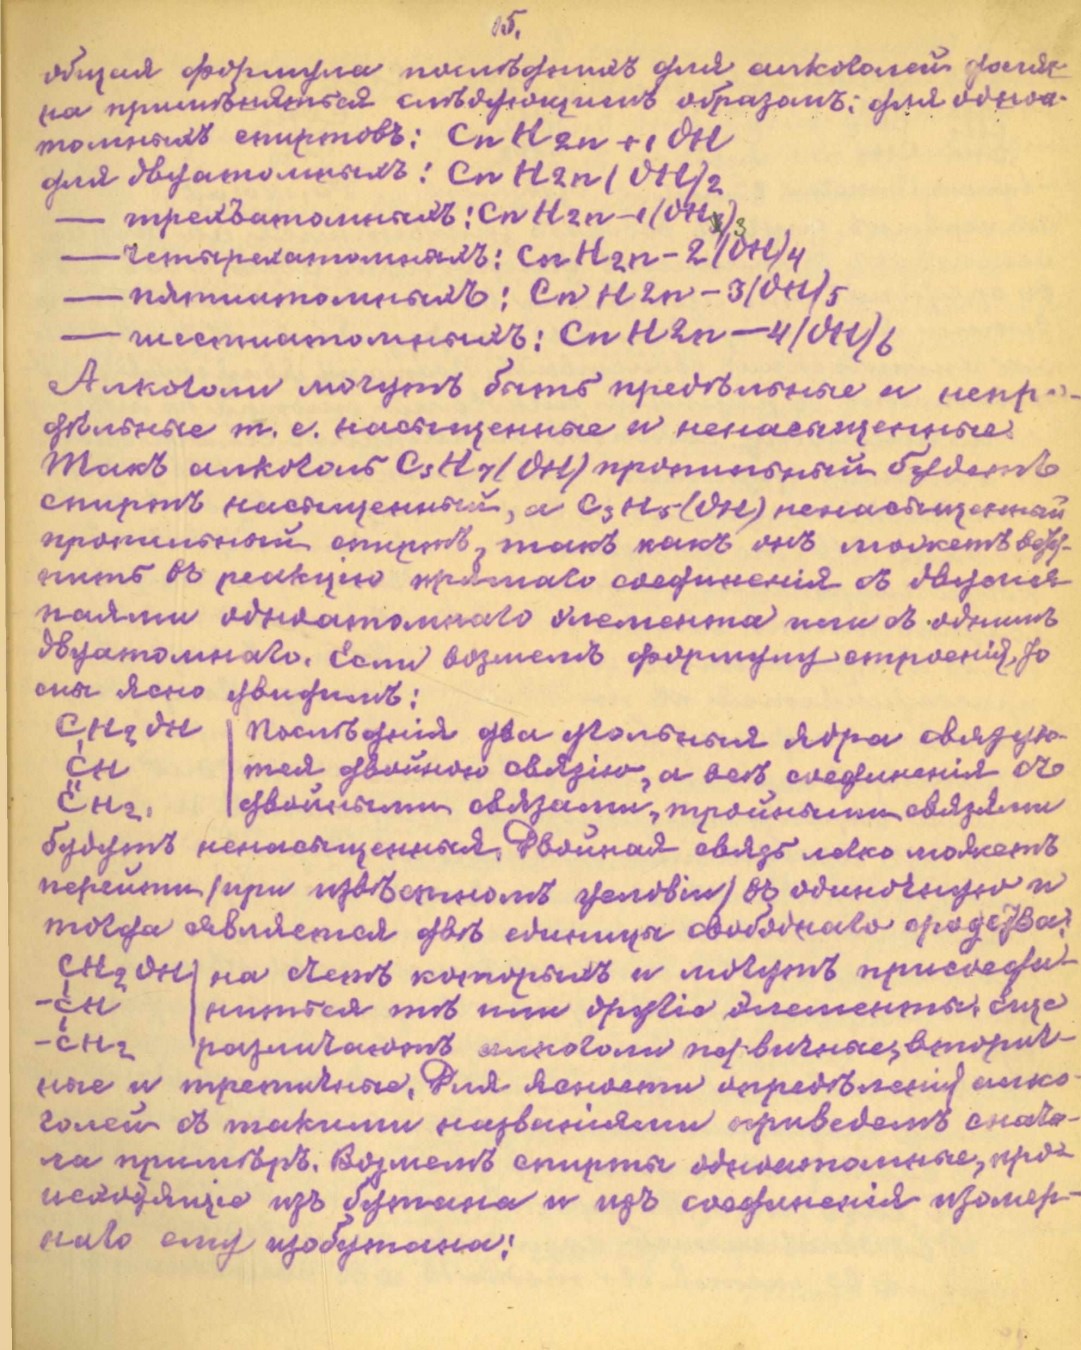 15.
общая формула послѣднихъ для алкоголей должн-
на примѣняться слѣдующимъ образомъ: для одноа-
томныхъ спиртовъ: CnH2n+1OH
для двуатомныхъ: CnH2n(OH)2
— трехъатомныхъ: CnH2n-1(OH)3
— четырехатомныхъ: CnH2n-2(OH)4
— пятиатомныхъ: CnH2n-3(OH)5
— шестиатомныхъ: CnH2n-4(OH)6
Алкоголи могутъ быть предѣльные и непре-
дѣльные т. е. насыщенные и ненасыщенные.
Такъ алкоголь C3H7(OH) пропильный будетъ
спиртъ насыщенный, а C3H5(OH) ненасыщенный
пропильный спиртъ, такъ какъ онъ можетъ всту-
пить въ реакцію прямаго соединенія съ двумя
паями одноатомнаго элемента или съ однимъ
двуатомнаго. Если возмемъ формулу строенія, то
мы ясно увидимъ:
CH2OH | Послѣднія два угольныя ядра связую-
CH | тся двойною связью, а всѣ соединенія съ
CH2. | двойными связами, тройными связями
будутъ ненасыщенныя. Двойная связь легко можетъ
перейти (при извѣстномъ условіи) въ одиночную и
тогда является двѣ единицы свободнаго сродства:
CH2OH | на счетъ которыхъ и могутъ присоеди-
-CH | ниться тѣ или другіе элементы. Еще
-CH2 | различаютъ алкоголи первичные, вторич-
ные и третичные. Для ясности опредѣленія алко-
голей съ такими названіями приведемъ снача-
ла примѣръ. Возмемъ спирты одноатомные, про-
исходящіе изъ бутана и изъ соединенія изомер-
наго ему изобутана: